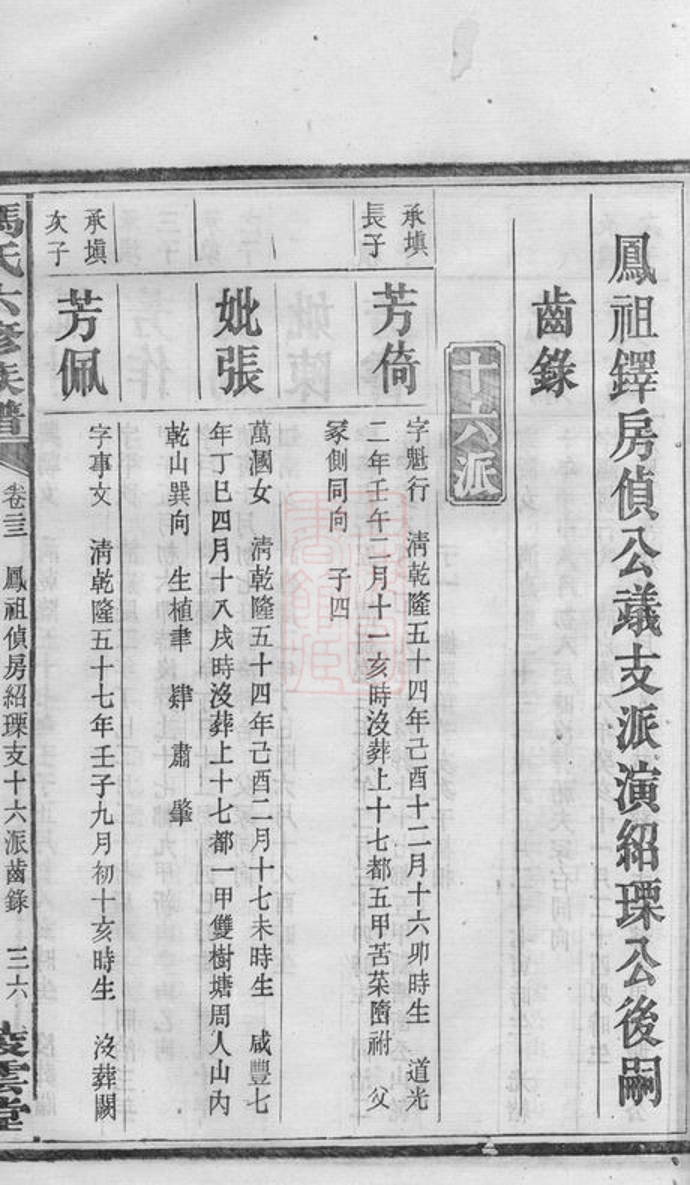 鳳祖鐸房偵公議支派演紹瑮公後嗣
齒錄
十六派
承塡
長子
芳倚
字魁行 清乾隆五十四年己酉十二月十六卯時生 道光
二年壬午二月十一亥時沒葬上十七都五甲苦菜墮祔 父
冢側同向 子四
妣張
萬國女 清乾隆五十四年己酉二月十七未時生 咸豐七
年丁巳四月十八戌時沒葬上十七都一甲雙樹塘周人山內
乾山巽向 生植聿 肄 肅 肇
承塡
次子
芳佩
字事文 清乾隆五十七年壬子九月初十亥時生 沒葬闕
馮氏六修族譜
卷二三 鳳祖偵房紹瑮支十六派齒錄 三六
凌雲堂